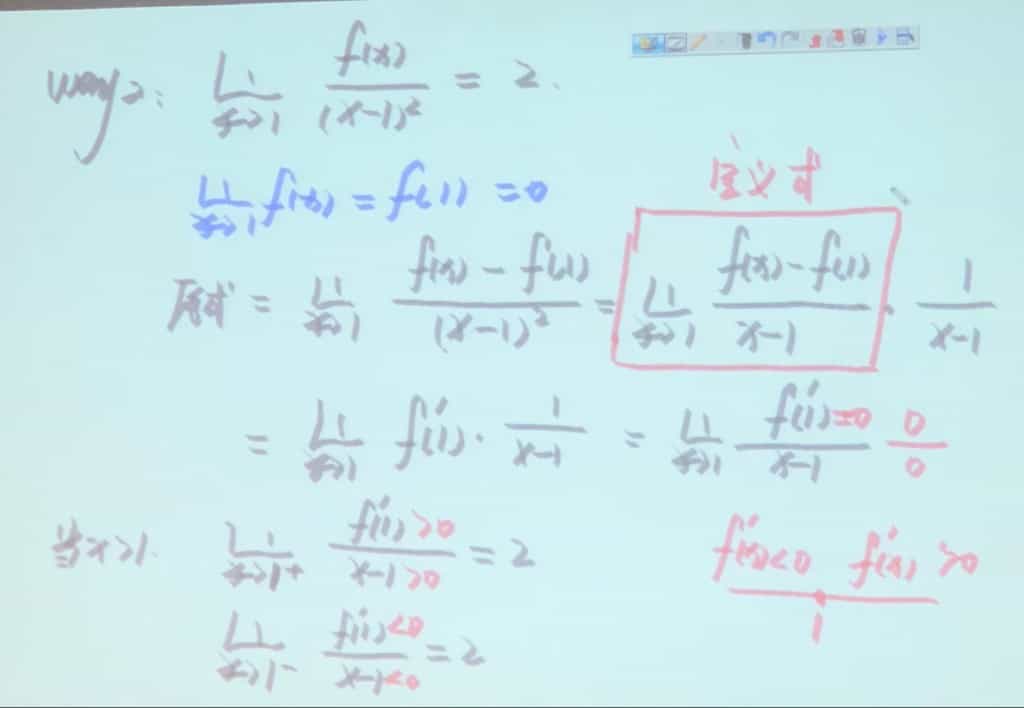 way2: lim x→1 f(x)/(x-1)² = 2.
lim x→1 f(x) = f(1) = 0
定义式
原式 = lim x→1 (f(x) - f(1))/(x-1)² = lim x→1 (f(x) - f(1))/(x-1) · 1/(x-1)
= lim x→1 f'(1) · 1/(x-1) = lim x→1 f'(1)=0/(x-1) 0/0
当x→1. lim x→1+ f'(1)>0/(x-1>0) = 2 f'(x)<0 f'(x)>0
1
lim x→1- f'(1)<0/(x-1<0) = 2